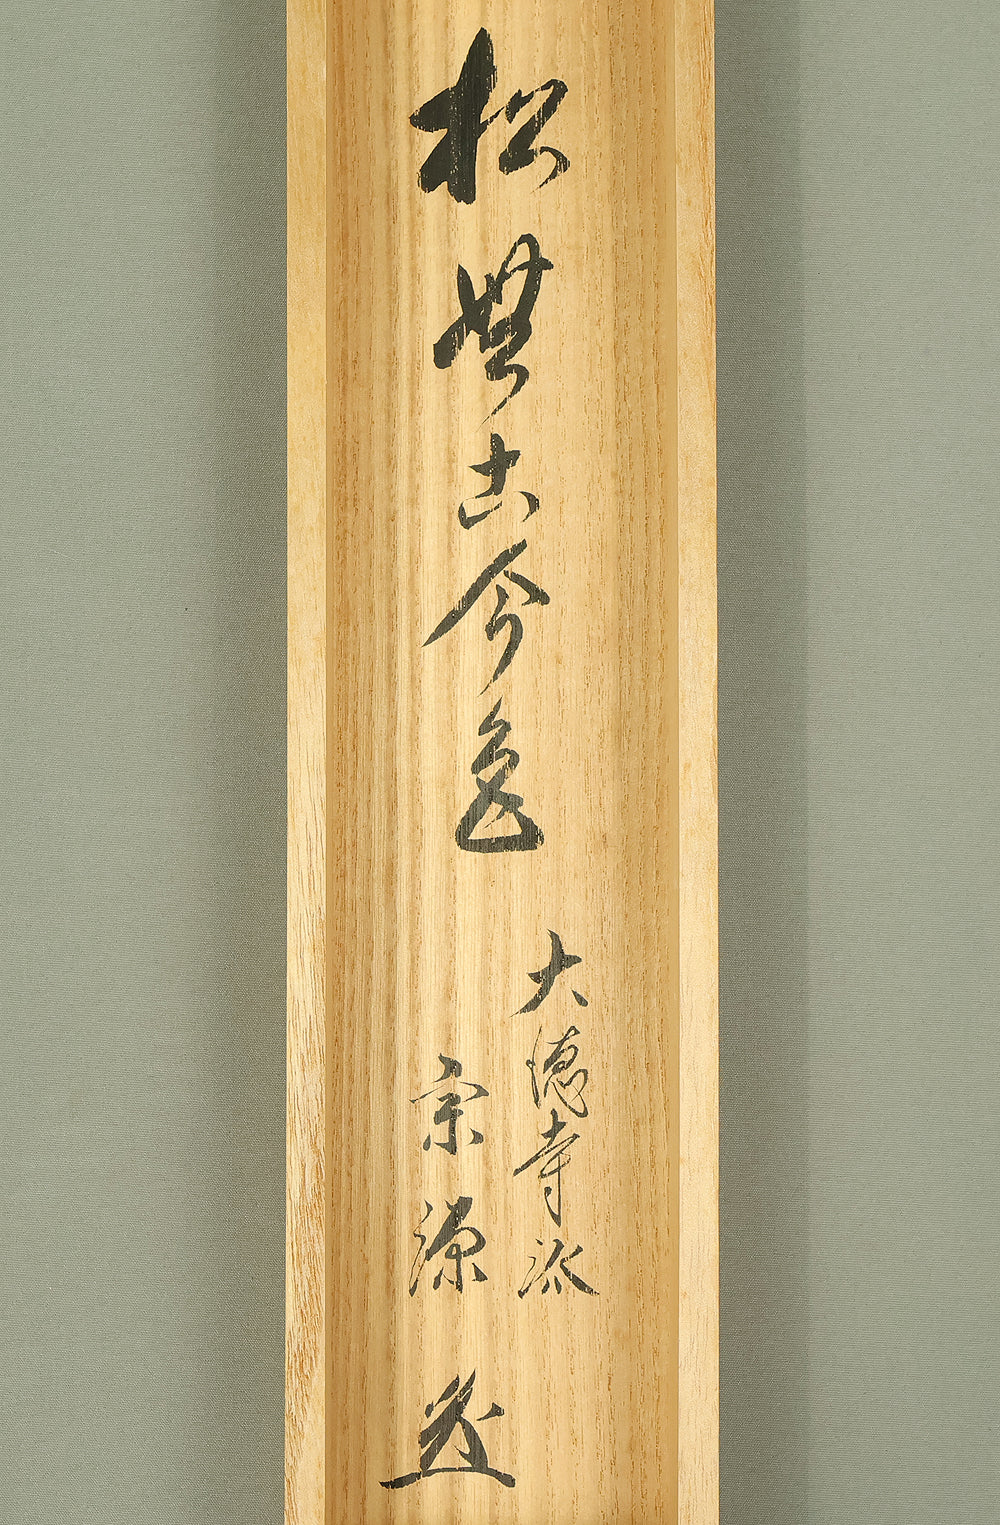 松無古今色
大徳寺派
宗源